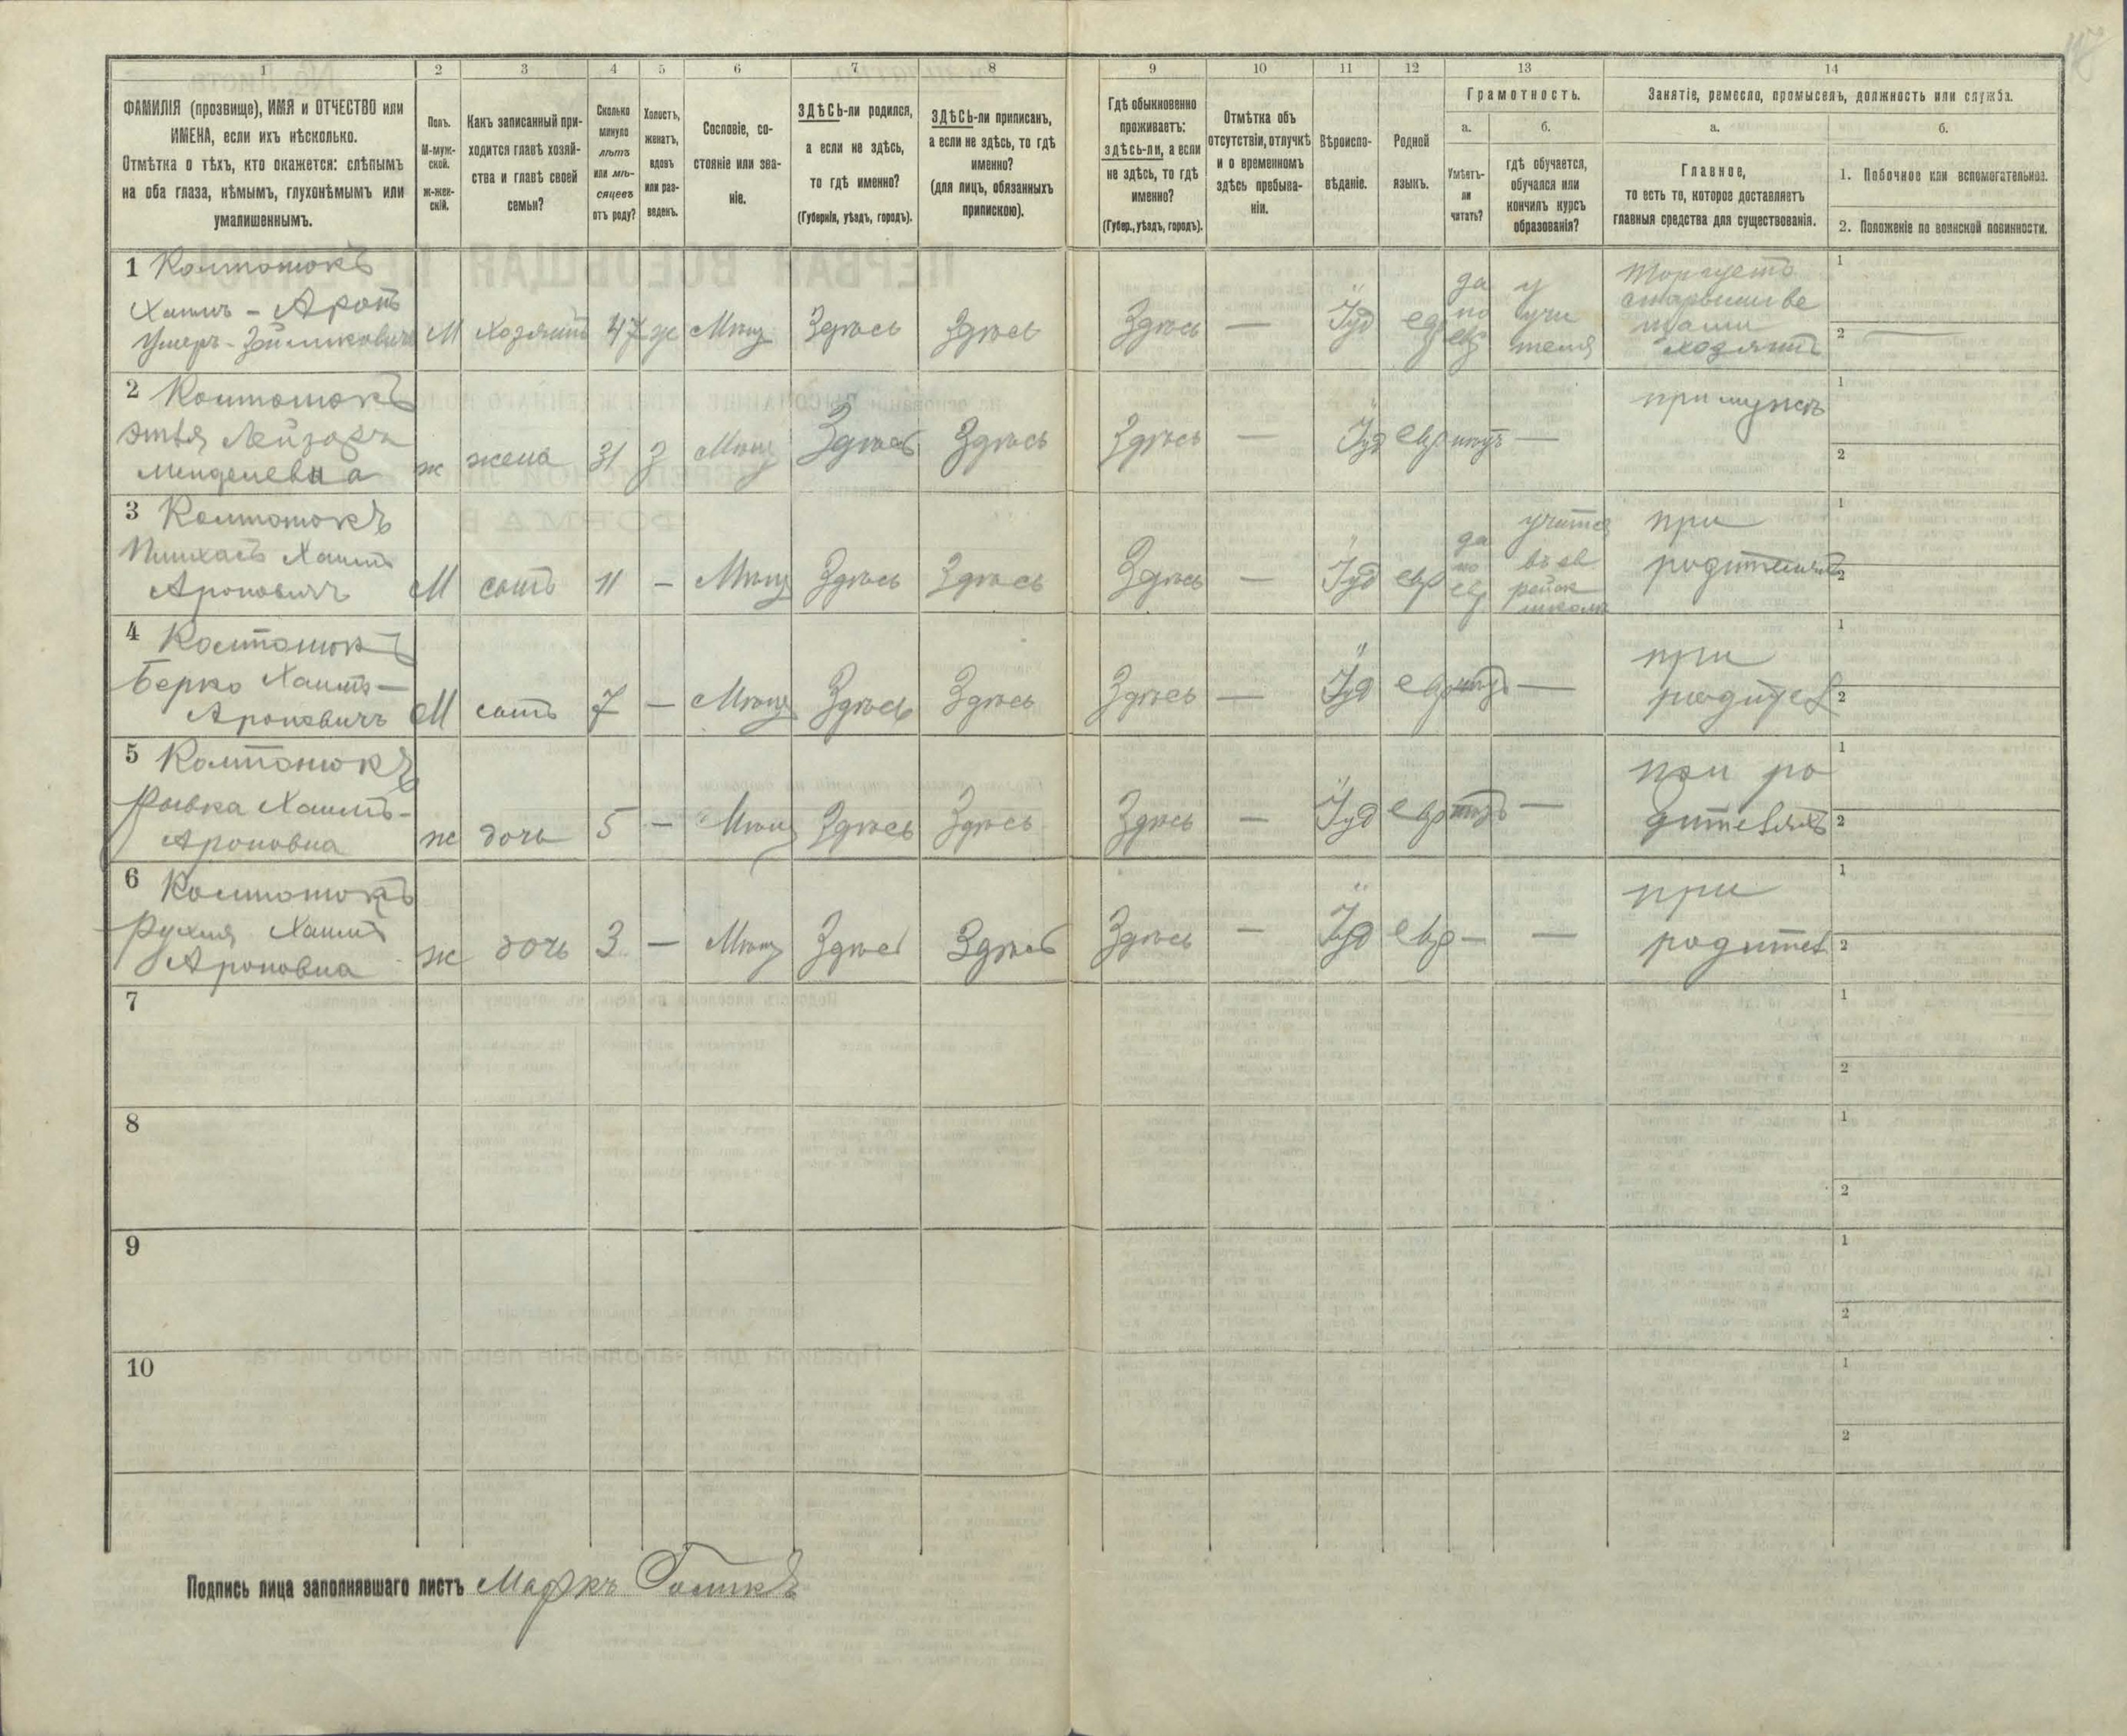 1
2
3
4
5
6
7
8
9
10
11
12
13
14
ФАМИЛІЯ (прозвище), ИМЯ и ОТЧЕСТВО или
ИМЕНА, если ихъ нѣсколько.
Отмѣтка о тѣхъ, кто окажется: слѣпымъ
на оба глаза, нѣмымъ, глухонѣмымъ или
умалишеннымъ.
Полъ.
М-муж-
ской.
ж-жен-
скій.
Какъ записанный при-
ходится главѣ хозяй-
ства и главѣ своей
семьи?
Сколько
минуло
лѣтъ
или мѣ-
сяцевъ
отъ роду?
Холостъ,
женатъ,
вдовъ
или раз-
веденъ.
Сословіе, со-
стояніе или зва-
ніе.
ЗДѢСЬ-ли родился,
а если не здѣсь,
то гдѣ именно?
(Губернія, уѣздъ, городъ).
ЗДѢСЬ-ли приписанъ,
а если не здѣсь, то гдѣ
именно?
(для лицъ, обязанныхъ
припискою).
Гдѣ обыкновенно
проживаетъ:
здѣсь-ли, а если
не здѣсь, то гдѣ
именно?
(Губер., уѣздъ, городъ).
Отмѣтка объ
отсутствіи, отлучкѣ
и о временномъ
здѣсь пребыва-
ніи.
Вѣроиспо-
вѣданіе.
Родной
языкъ.
Грамотность.
а.
Умѣетъ-
ли
читать?
б.
гдѣ обучается,
обучался или
кончилъ курсъ
образованія?
Занятіе, ремесло, промыселъ, должность или служба.
а.
Главное,
то есть то, которое доставляетъ
главныя средства для существованія.
б.
1. Побочное или вспомогательное.
2. Положеніе по воинской повинности.
1 Колтонюкъ
Хаимъ - Аронъ
М хозяинъ 47 ж Мѣщ Здѣсь Здѣсь Здѣсь — Іуд евр
да
по
евр
у
учи
теля
Торгуетъ
старыми ве
щами
хозяинъ
1
2 —
2 Колтонюкъ
Этля Лейзеръ
Менделевна
ж жена 31 З Мѣщ Здѣсь Здѣсь Здѣсь — Іуд евр —
при мужѣ
1
2
3 Колтонюкъ
Пинхасъ Хаимъ
Ароновичъ
М сынъ 11 — Мѣщ Здѣсь Здѣсь Здѣсь — Іуд евр
да
по
евр
учится
въ ев
рейск
школѣ
при
родителяхъ
1
2
4 Колтонюкъ
Берко Хаимъ-
Ароновичъ
М сынъ 7 — Мѣщ Здѣсь Здѣсь Здѣсь — Іуд евр —
при
родител
1
2
5 Колтонюкъ
Рывка Хаимъ-
Ароновна
ж дочь 5 — Мѣщ Здѣсь Здѣсь Здѣсь — Іуд евр —
при ро
дителяхъ
1
2
6 Колтонюкъ
Рухля Хаимъ
Ароновна
ж дочь 3 — Мѣщ Здѣсь Здѣсь Здѣсь — Іуд евр — —
при
родител
1
2
7
1
2
8
1
2
9
1
2
10
1
2
Подпись лица заполнявшаго листъ Маркъ